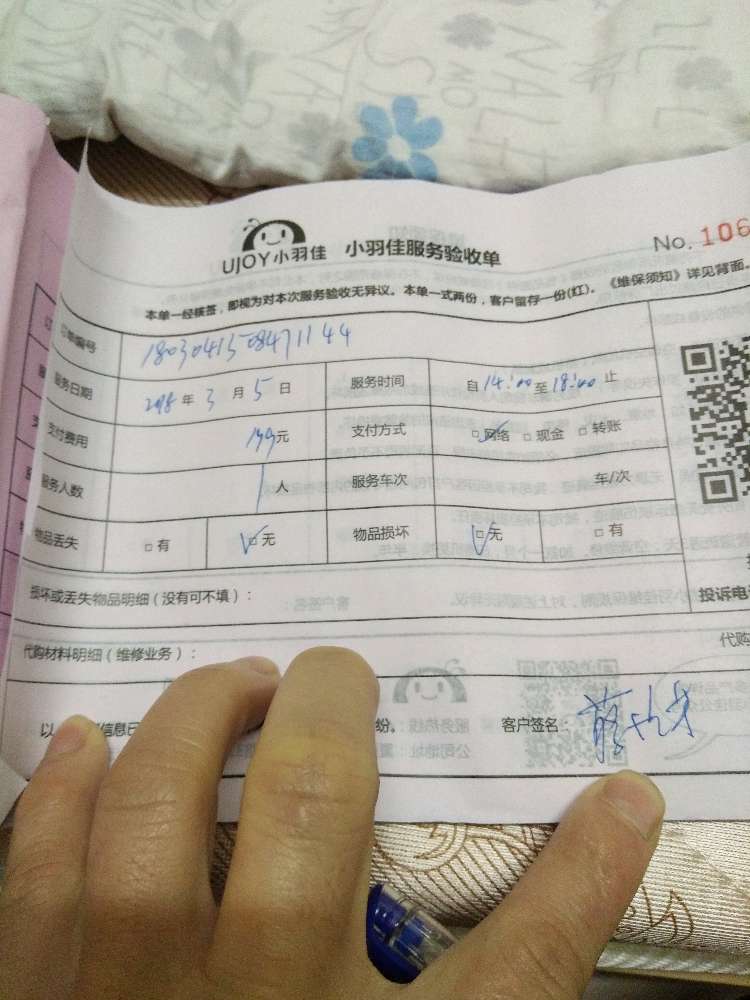 UJOY小羽佳 小羽佳服务验收单
No. 106
本单一经核签，即视为对本次服务验收无异议。本单一式两份，客户留存一份(红)。《维保须知》详见背面。
订单编号 1803041508471144
服务日期 2018年3月5日 服务时间 自14:00至18:00止
支付费用 199元 支付方式 □网络 □现金 □转账
服务人数 1人 服务车次 车/次
物品丢失 □有 □无 物品损坏 □无 □有
损坏或丢失物品明细（没有可不填）：
投诉电
代购材料明细（维修业务）：
代购
以 信息已 纷。 客户签名：